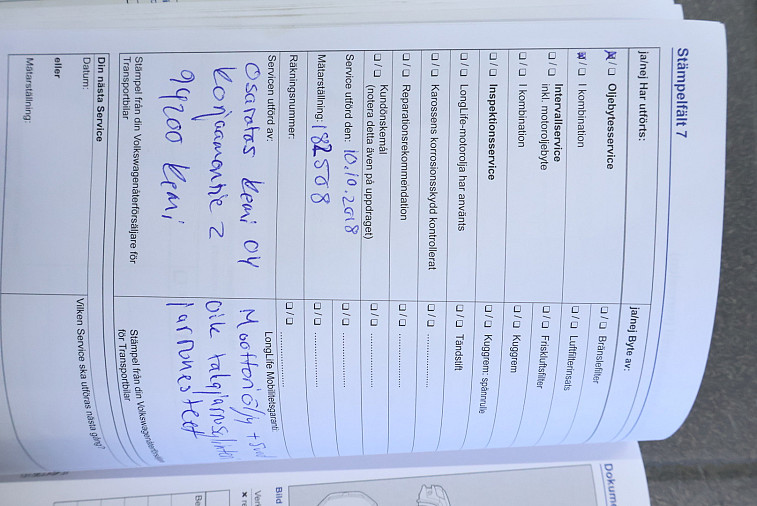 Stämpelfält 7
ja/nej Har utförts:
ja/nej Byte av:
☒/☐ Oljebytesservice
☐/☐ Bränslefilter
☒/☐ I kombination
☐/☐ Luftfilterinsats
☐/☐ Intervallservice
inkl. motoroljebyte
☐/☐ Friskluftsfilter
☐/☐ I kombination
☐/☐ Kuggrem
☐/☐ Inspektionsservice
☐/☐ Kuggrem: spännrulle
☐/☐ LongLife-motorolja har använts
☐/☐ Tändstift
☐/☐ Karossens korrosionsskydd kontrollerat
☐/☐ ....................
☐/☐ Reparationsrekommendation
☐/☐ ....................
☐/☐ Kundönskemål
(notera detta även på uppdraget)
☐/☐ ....................
Service utförd den: 10.10.2018
☐/☐ ....................
Mätarställning: 182508
☐/☐ ....................
Räkningsnummer:
☐/☐ ....................
Servicen utförd av:
LongLife Mobilitetsgaranti:
Osaratas Kemi OY
Konjaamontie 2
94200 Kemi
Moottoriöljy +
Stämpel från din Volkswagenåterförsäljare för
Transportbilar
Stämpel från din Volkswagenåterförsäljare
för Transportbilar
Din nästa Service
Datum:
Vilken Service ska utföras nästa gång?
eller
Mätarställning:
Dokume
Bild